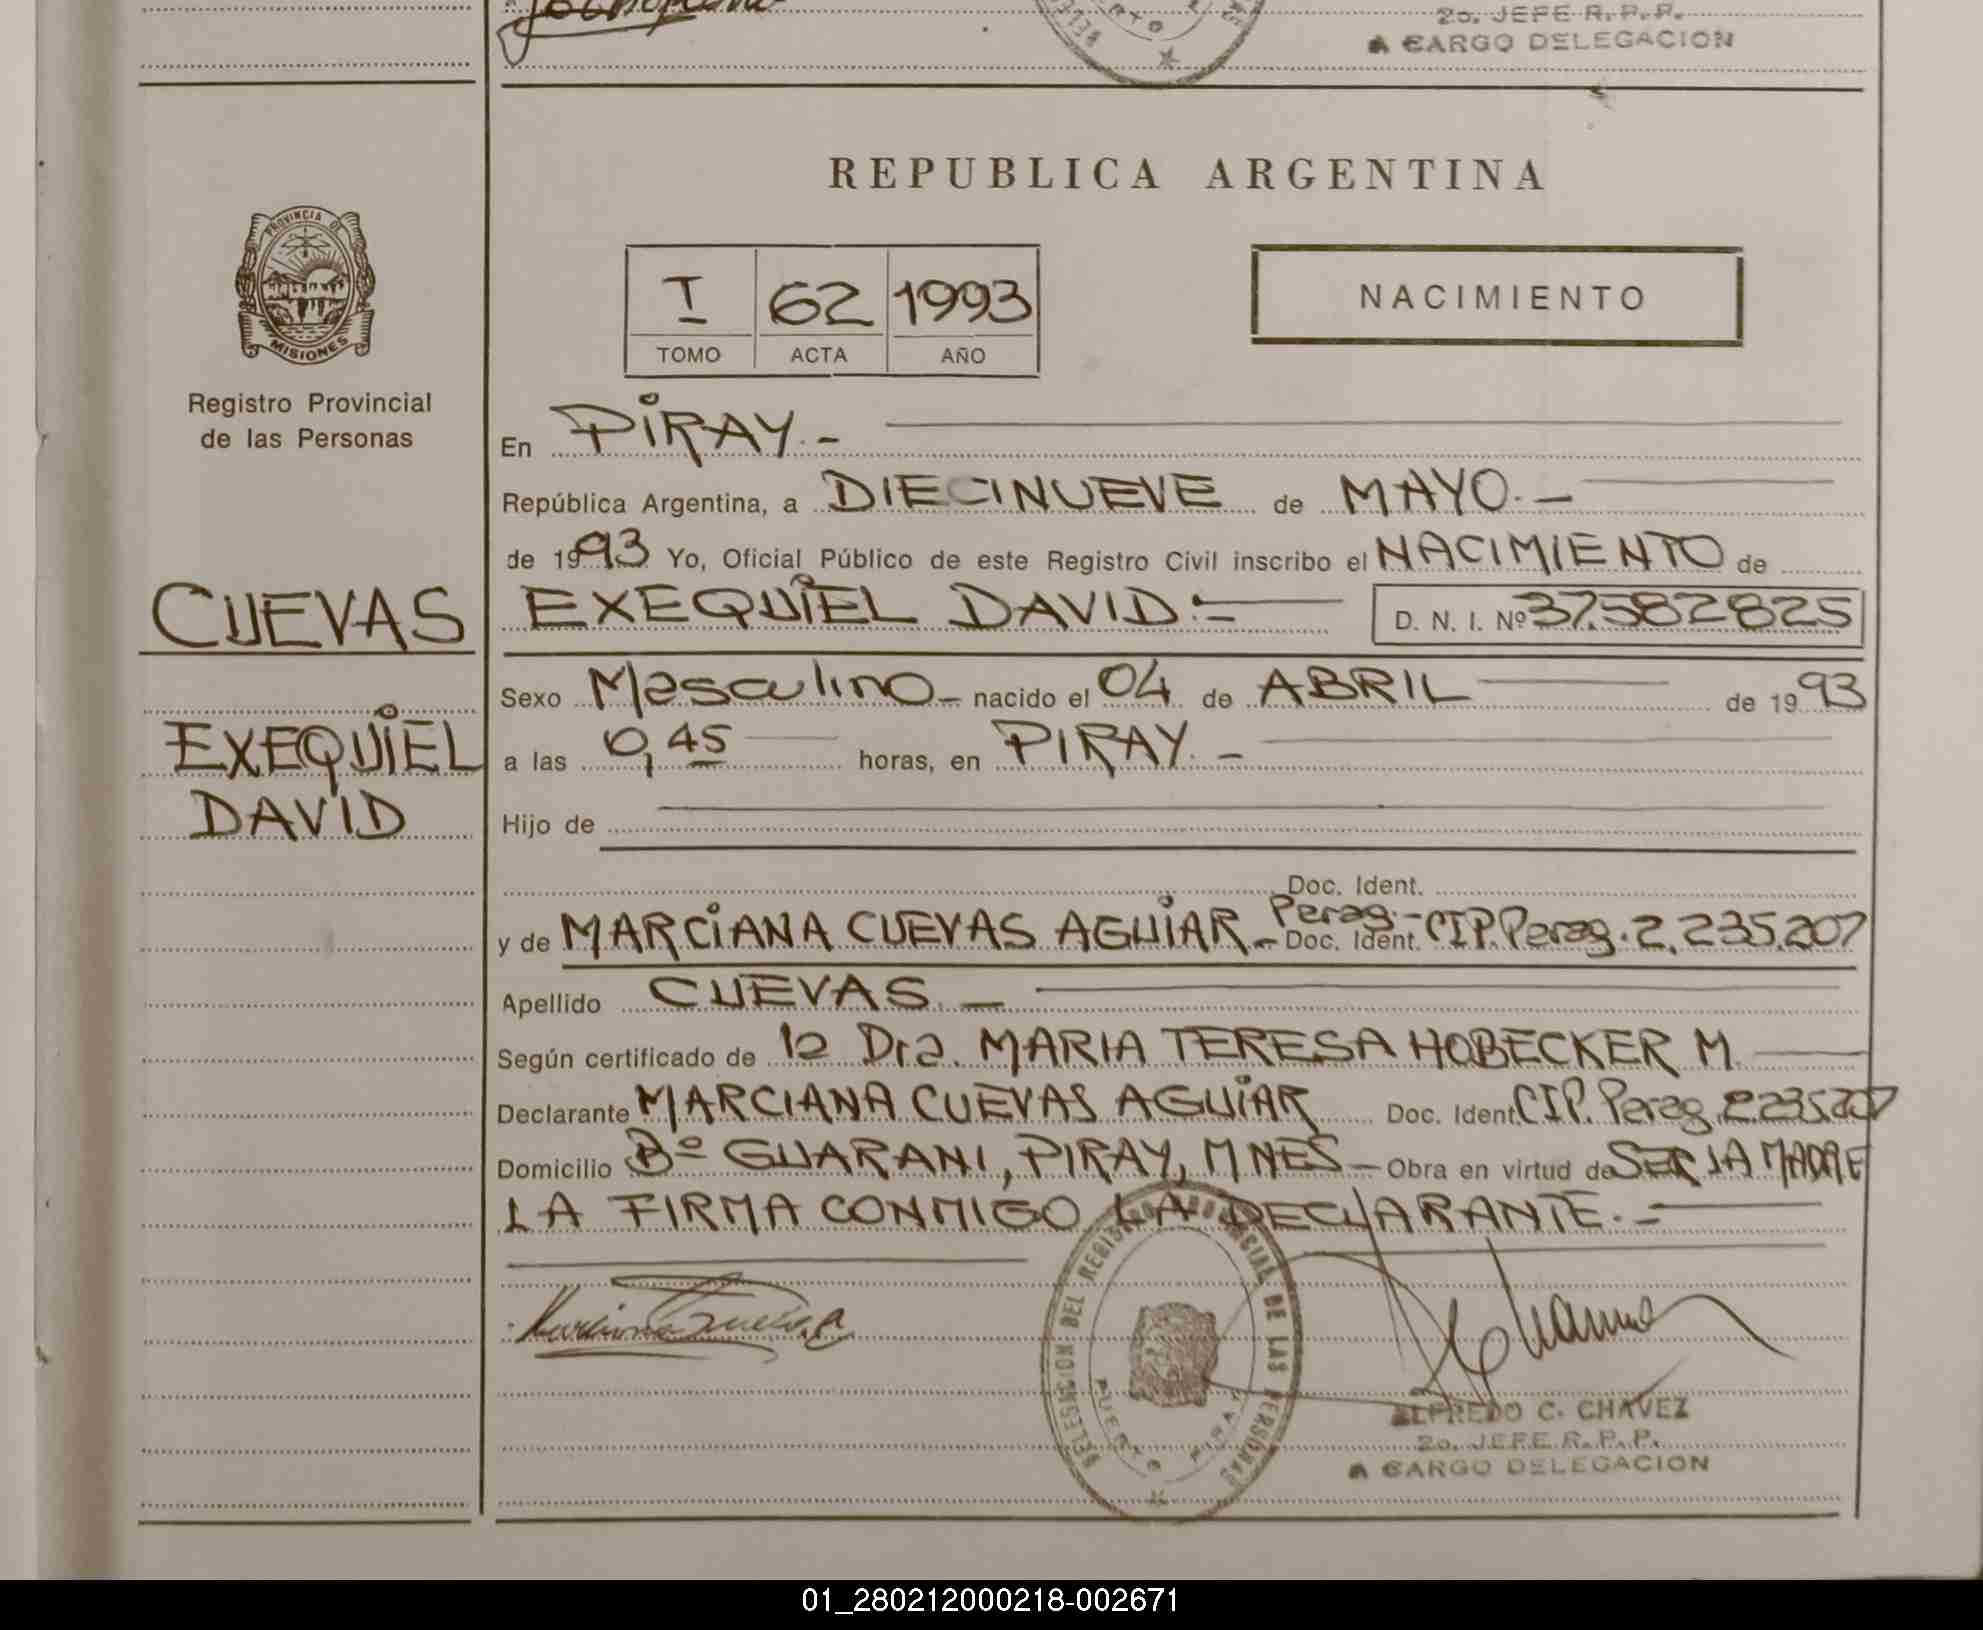 2o. JEFE R.P.P.
A CARGO DELEGACION
REPUBLICA ARGENTINA
PROVINCIA DE
MISIONES
Registro Provincial
de las Personas
I 62 1993
TOMO ACTA AÑO
NACIMIENTO
En PIRAY.-
República Argentina, a DIECINUEVE de MAYO.-
de 1993 Yo, Oficial Público de este Registro Civil inscribo el NACIMIENTO de
CUEVAS
EXEQUIEL DAVID.- D. N. I. Nº 37.582825
Sexo Masculino - nacido el 04 de ABRIL de 1993
EXEQUIEL
a las 0,45 horas, en PIRAY.-
DAVID
Hijo de
Doc. Ident.
y de MARCIANA CUEVAS AGUIAR - Parag.- Doc. Ident. CIP. Parag. 2.235.207
Apellido CUEVAS.-
Según certificado de la Dra. MARIA TERESA HOBECKER M.
Declarante MARCIANA CUEVAS AGUIAR Doc. Ident. CIP. Parag. 2235.207
Domicilio Bº GUARANI, PIRAY, MNES - Obra en virtud de SER LA MADRE
LA FIRMA CONMIGO LA DECLARANTE.-
DELEGACION DEL REGISTRO PROVINCIAL DE LAS PERSONAS
PUERTO PIRAY
ALFREDO C. CHAVEZ
2o. JEFE R.P.P.
A CARGO DELEGACION
01_280212000218-002671